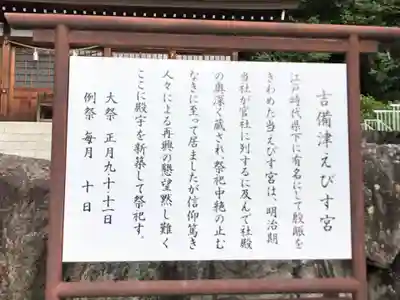 吉備津えびす宮
江戸時代県下に有名にして殷賑を
きわめた当えびす宮は、明治期
当社が官社に列するに及んで社殿
の奥深く蔵され祭祀中絶の止む
なきに至って居ましたが信仰篤き
人々による再興の懇望黙し難く
ここに殿宇を新築して祭祀す。
大祭 正月九十十一日
例祭 毎月 十日